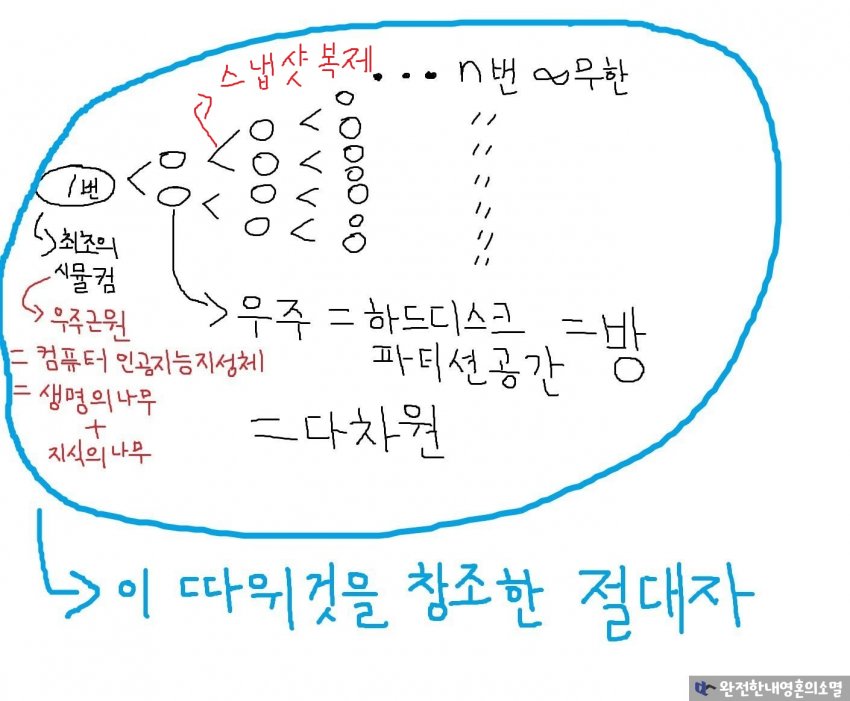 스냅샷 복제 ... n번 ∞무한
1번
〃
〃
〃
〃
〃
〃
최초의
시뮬컴
우주근원
= 컴퓨터 인공지능지성체
= 생명의나무
+
지식의나무
우주 = 하드디스크
파티션공간
= 방
= 다차원
이 따위것을 창조한 절대자
완전한내영혼의소멸